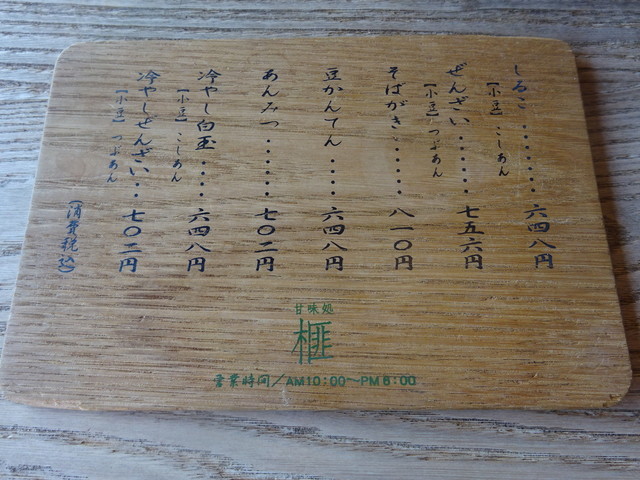 しるこ・・・・・・・六四八円
【小豆】こしあん
ぜんざい・・・・・七五六円
【小豆】つぶあん
そばがき・・・・・八一〇円
豆かんてん・・・・六四八円
あんみつ・・・・・・七〇二円
冷やし白玉・・・・六四八円
【小豆】こしあん
冷やしぜんざい・・七〇二円
【小豆】つぶあん
(消費税込)
甘味処
榧
営業時間/AM10:00〜PM6:00